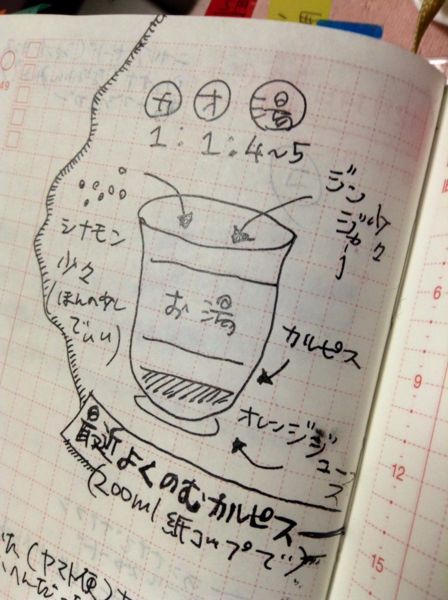 カ オ 湯
1 : 1 : 4~5
ジンジャー
少々
シナモン
少々
(ほんの少し
でいい)
お湯
カルピス
オレンジジュース
最近よくのむカルピス
(200ml 紙コップで)
(ヤマト便)
49
6
9
12
15